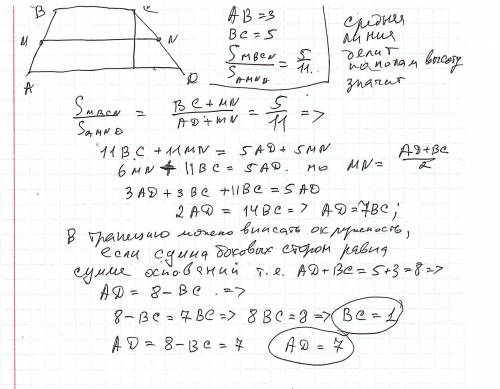 B C
AB=3
BC=5
S_MBCN / S_AMND = 5/11
средняя
линия
делит
пополам высоту
значит
M N
A D
S_MBCN / S_AMND = (BC+MN) / (AD+MN) = 5/11 =>
11BC + 11MN = 5AD + 5MN
6MN + 11BC = 5AD. но MN = (AD+BC)/2
3AD + 3BC + 11BC = 5AD
2AD = 14BC => AD = 7BC;
В трапецию можно вписать окружность,
если сумма боковых сторон равна
сумме оснований т.е. AD+BC=5+3=8 =>
AD = 8-BC. =>
8-BC = 7BC => 8BC=8 => BC=1
AD = 8-BC = 7 AD=7